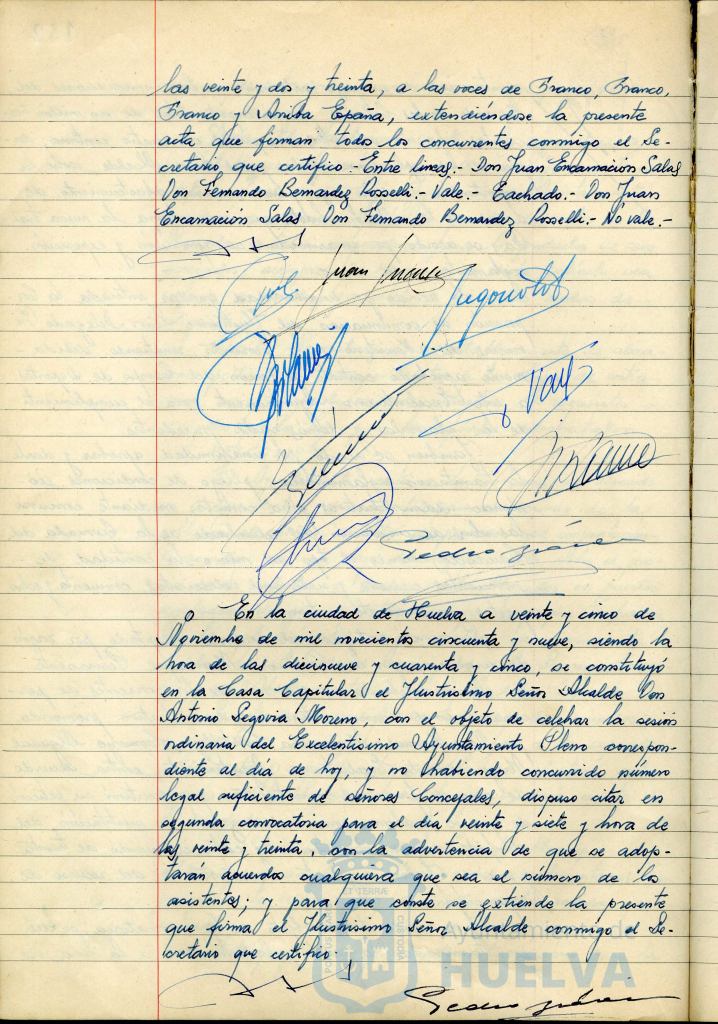 las veinte y dos y treinta, a las voces de Franco, Franco,
Franco y Arriba España, extendiéndose la presente
acta que firman todos los concurrentes conmigo el Se-
cretario que certifico.- Entre lineas.- Don Juan Encarnación Salas
Don Fernando Bernardez Rosselli.- Vale.- Tachado.- Don Juan
Encarnación Salas Don Fernando Bernardez Rosselli.- No vale.-
Segovia
Pedro
En la ciudad de Huelva a veinte y cinco de
Noviembre de mil novecientos cincuenta y nueve, siendo la
hora de las diecinueve y cuarenta y cinco, se constituyó
en la Casa Capitular el Ilustrisimo Señor Alcalde Don
Antonio Segovia Moreno, con el objeto de celebrar la sesión
ordinaria del Excelentisimo Ayuntamiento Pleno correspon-
diente al día de hoy, y no habiendo concurrido número
legal suficiente de señores Concejales, dispuso citar en
segunda convocatoria para el día veinte y siete y hora de
las veinte y treinta, con la advertencia de que se adop-
tarán acuerdos cualquiera que sea el número de los
asistentes; y para que conste se extiende la presente
que firma el Ilustrisimo Señor Alcalde conmigo el Se-
cretario que certifico.
Ayuntamiento de
HUELVA
Pedro